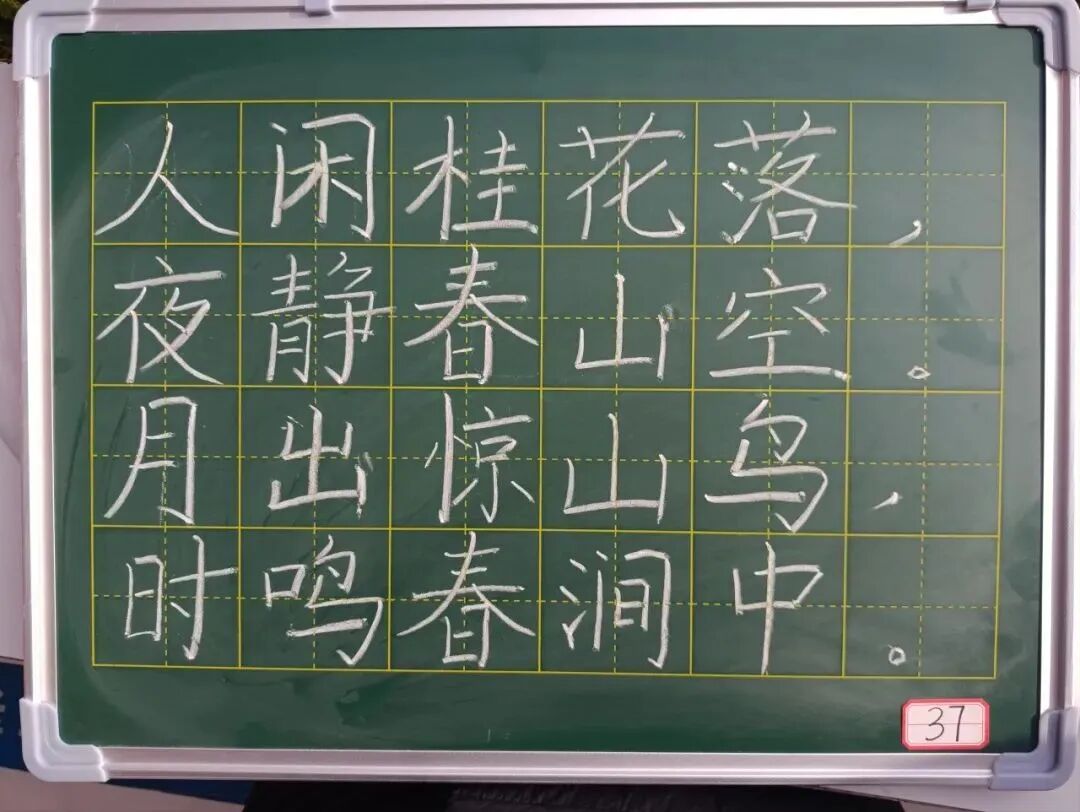 人闲桂花落，
夜静春山空。
月出惊山鸟，
时鸣春涧中。
37